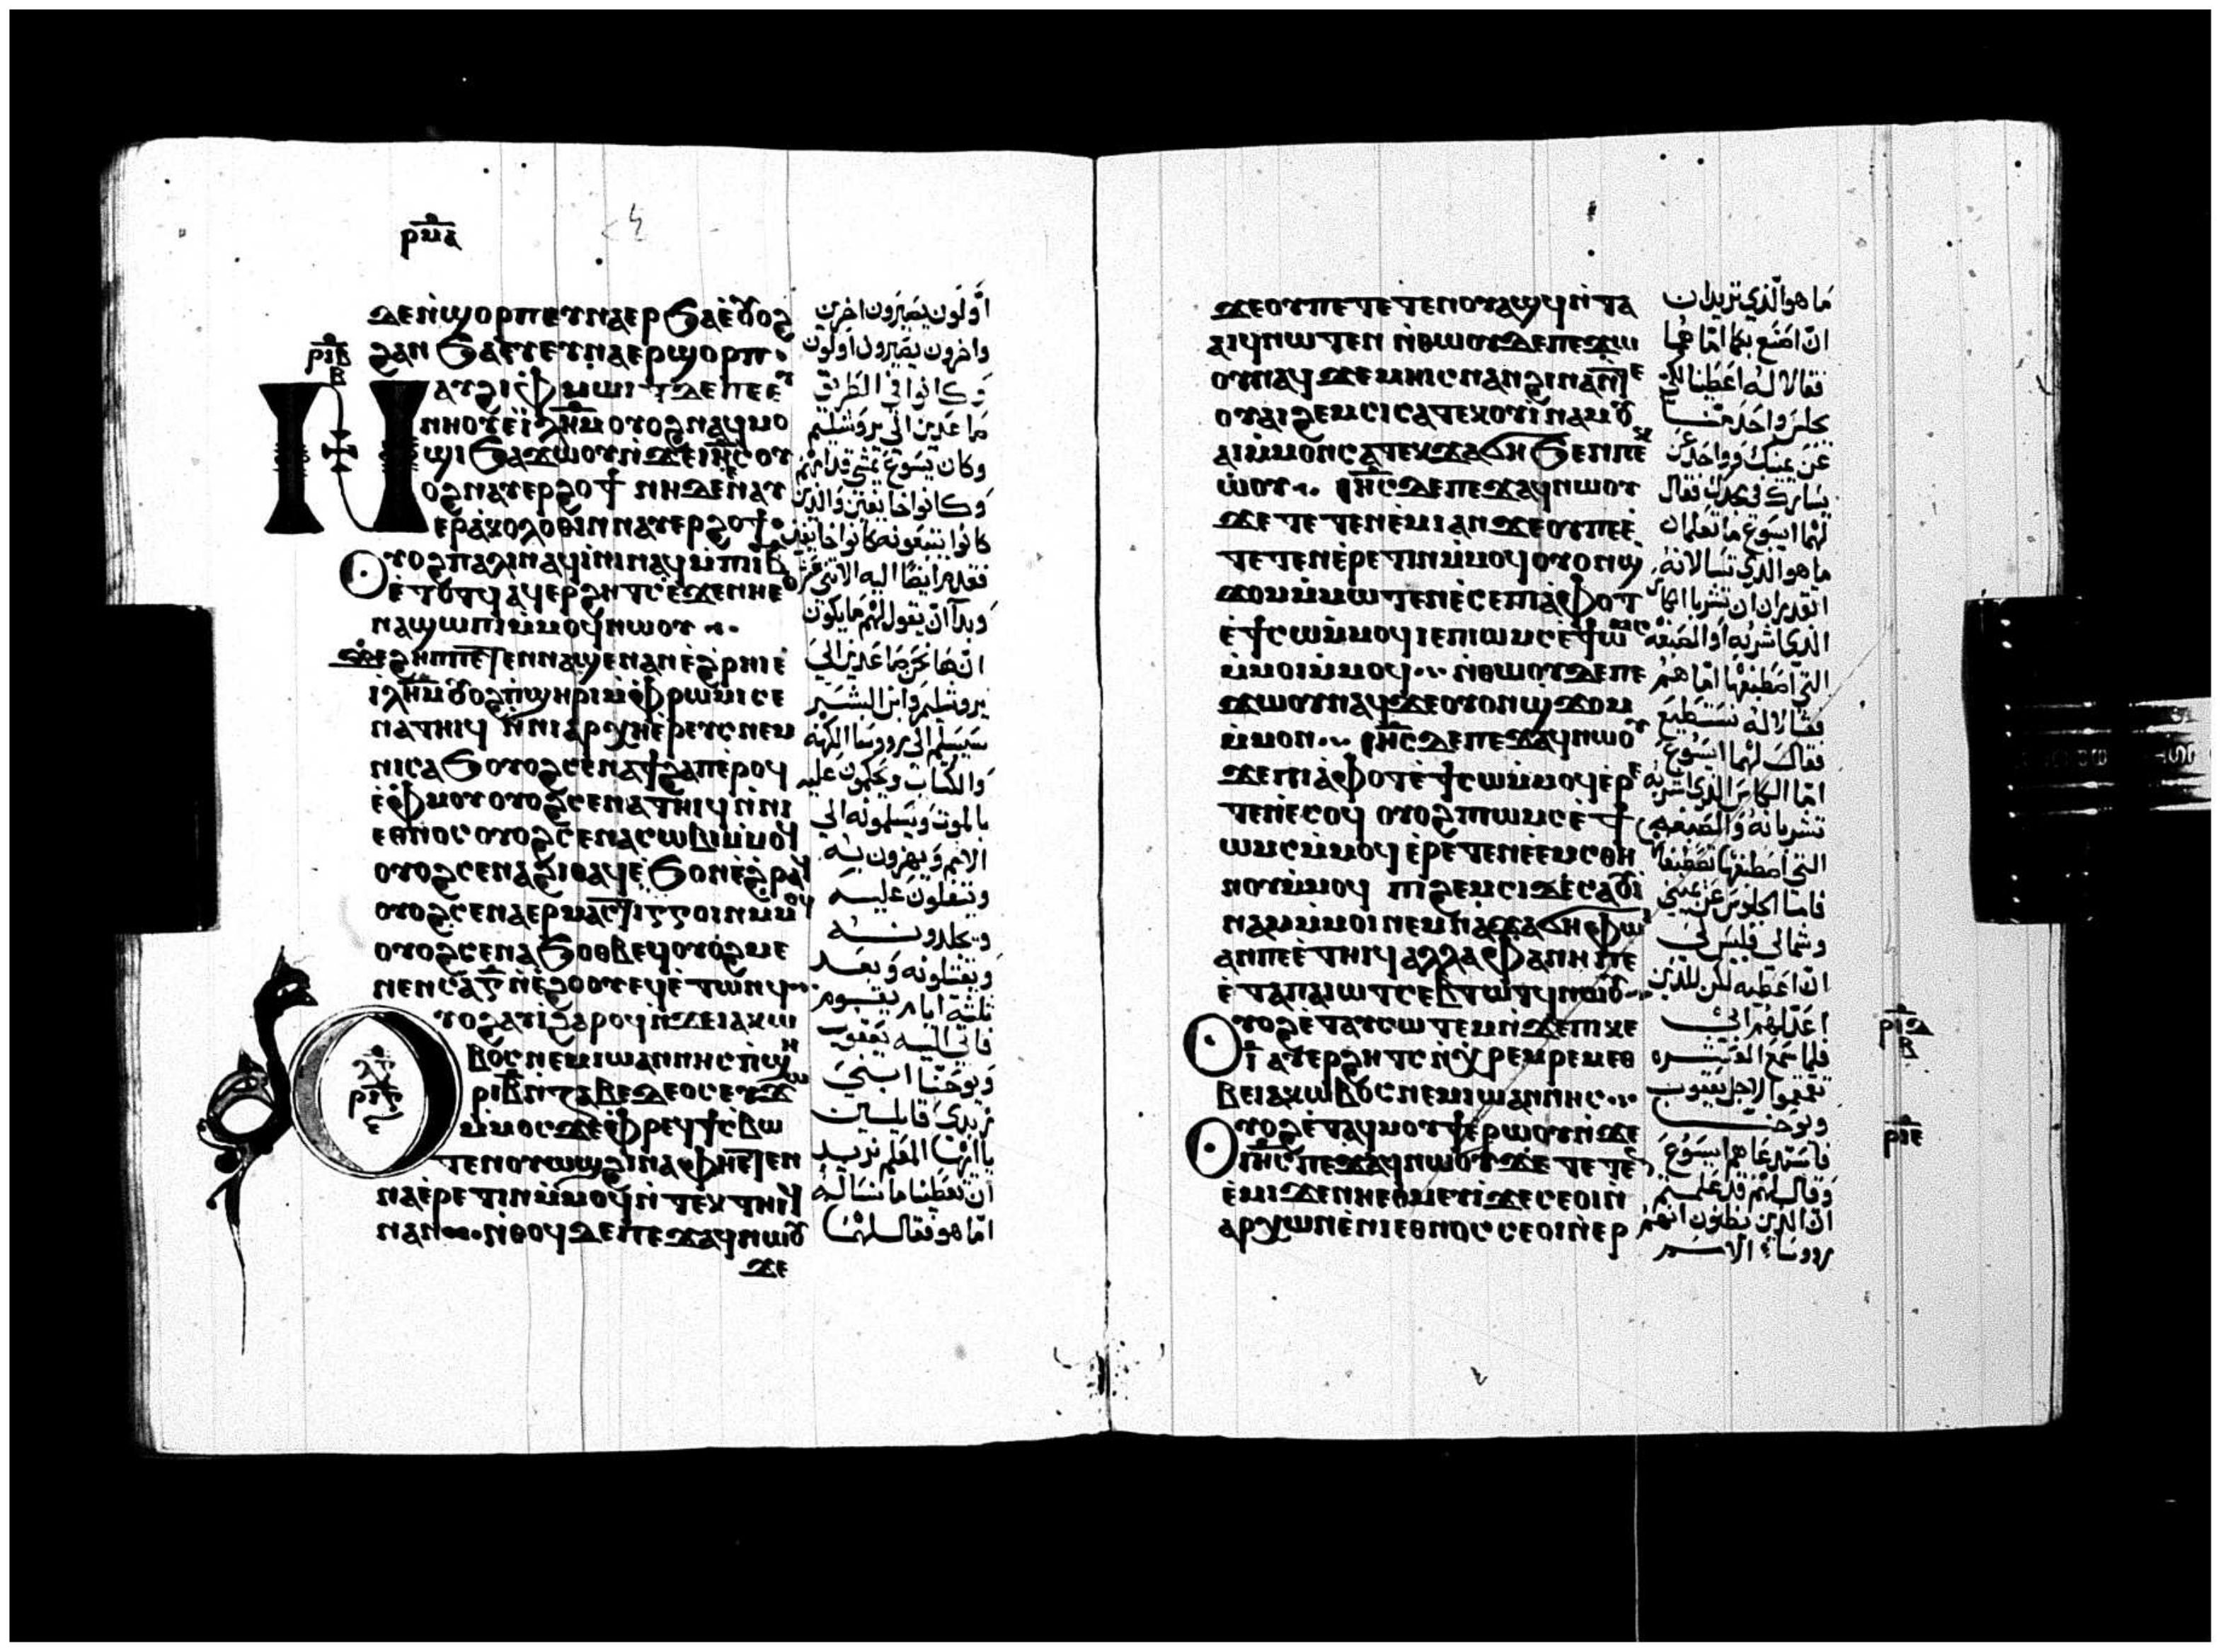 ⲣⲙⲁ
ϫⲉⲛ̀ϣⲟⲣⲡⲉⲩⲛⲁⲉⲣϧⲁⲉ̀ⲃⲟⲗ
ϩⲁⲛϧⲁⲉⲩⲉⲩⲛⲁⲉⲣϣⲟⲣⲡ·
ⲣⲓⲃ
ⲃ
ⲛⲁⲩϩⲓⲫⲙⲱⲓⲧⲇⲉⲡⲉⲉⲩ
ⲛⲛⲏⲟⲩⲉ̀ⲓ̈ⲗ̅ⲏ̅ⲙ̅ⲟⲩⲟϩⲛⲁϥⲙⲟ
ϣⲓϧⲁϫⲱⲟⲩⲛ̀ϫⲉⲓ̅ⲏ̅ⲥ̅ⲟⲩ
ⲟϩⲛⲁⲩⲉⲣϩⲟϯ ⲛⲏⲇⲉⲛⲁⲩ
ⲉⲣⲁ̀ⲕⲟⲗⲟⲑⲓⲛⲛⲁⲩⲉⲣϩⲟϯ·
ⲟⲩⲟϩⲡⲁⲗⲓⲛⲁϥⲓ̀ⲛⲓⲛⲁϥⲙ̀ⲡⲓⲓ̅ⲃ̅
ⲉ̀ⲧⲟⲧϥ ⲁϥⲉⲣϩⲏⲧⲥⲉ̀ϫⲉⲛⲏⲉⲑ
ⲛⲁϣⲱⲡⲓⲙ̀ⲙⲟϥⲛⲱⲟⲩ
ϫⲉϩⲏⲡⲡⲉⲧⲉⲛⲛⲁϣⲉⲛⲁⲛⲉ̀ϩⲣⲏⲓⲉ̀
ⲓ̅ⲗ̅ⲏ̅ⲙ̅ⲟⲩⲟϩⲡ̀ϣⲏⲣⲓⲙ̀ⲫⲣⲱⲙⲓⲥⲉ
ⲛⲁⲧⲏⲓϥ ⲛ̀ⲛⲓⲁⲣⲭⲏⲉ̀ⲣⲉⲩⲥⲛⲉⲙ
ⲛⲓⲥⲁϧⲟⲩⲟϩⲥⲉⲛⲁϯϩⲁⲡⲉ̀ⲣⲟϥ
ⲉ̀ⲫⲙⲟⲩⲟⲩⲟϩⲥⲉⲛⲁⲧⲏⲓϥⲛ̀ⲛⲓ
ⲉⲑⲛⲟⲥⲟⲩⲟϩⲥⲉⲛⲁⲥⲱⲃⲓⲙ̀ⲙⲟϥ
ⲟⲩⲟϩⲥⲉⲛⲁϩⲓⲑⲁϥⲉϧⲟⲩⲛⲉ̀ϩⲣⲁϥ
ⲟⲩⲟϩⲥⲉⲛⲁⲉⲣⲙⲁⲥⲧⲓⲅⲅⲟⲓⲛⲙ̀ⲙⲟϥ
ⲟⲩⲟϩⲥⲉⲛⲁϧⲟⲑⲃⲉϥⲟⲩⲟϩⲙⲉ
ⲛⲉⲛⲥⲁⲅ̅ⲛ̀ⲉ̀ϩⲟⲟⲩⲉϥⲉ̀ⲧⲱⲛϥ
ⲟⲩⲟϩⲁⲩⲓ̀ϩⲁⲣⲟϥⲛ̀ϫⲉⲓⲁⲕⲱ
ⲣⲓⲅ
ⲃⲟⲥⲛⲉⲙⲓⲱⲁⲛⲛⲏⲥⲡ̀ϣⲏ
ⲣⲓⲃ̅ⲛ̀ⲍⲉⲃⲉⲇⲉⲟⲥⲉⲩϫⲱ
ⲙ̀ⲙⲟⲥϫⲉⲫⲣⲉϥϯⲥ̀ⲃⲱ
ⲧⲉⲛⲟⲩⲱϣϩⲓⲛⲁⲫⲏⲉⲧⲉⲛ
ⲛⲁⲉ̀ⲣⲉⲧⲓⲛⲙ̀ⲙⲟϥⲛ̀ⲧⲉⲕⲧⲏⲓϥ
ⲛⲁⲛ ⲛ̀ⲑⲟϥⲇⲉⲡⲉϫⲁϥⲛⲱⲟⲩ
ϫⲉ
اوّلون يصَيرون اخرين
واخرون يصَيرون اولون
وَكانوا في الطَريق
صَاعدين الي يروشليم
وكان يسَوع يمشي قدامهم
وَكانوا خايفين وَالذين
كانوا يتبعونه كانوا خايفين
فقدم ايضًا اليه الاثني عشر
وَبدا ان يقول لهم ما يكون
انّ ها نحن صَاعدين الي
يروشليم وابن البشَر
سَيسَلم الي رووسَا الكهنه
وَالكتاب ويحكمون عليه
بالموت وَيسَلمونه الي
الامم وَيهزون به
ويتفلون عليه
ويجلدونه
ويقتلونه وَبعد
ثلثة ايام يقوم
فاتي اليه يَعقوب
وَيوحَنا ابني
زبدي قايلين
يا ايها المعَلم نريد
ان تعطينا ما نسَاله
امّا هو فقال لهما
ϫⲉⲟⲩⲡⲉⲧⲉⲧⲉⲛⲟⲩⲁϣϥⲛ̀ⲧⲁ
ⲁⲓϥⲛⲱⲧⲉⲛ ⲛ̀ⲑⲱⲟⲩⲇⲉⲡⲉϫⲱ
ⲟⲩⲛⲁϥϫⲉⲙⲏⲓⲥⲛⲁⲛϩⲓⲛⲁⲛ̀ⲧⲉ
ⲟⲩⲁⲓϩⲉⲙⲥⲓⲥⲁⲧⲉⲕⲟⲩⲓ̀ⲛⲁⲙⲟⲩ
ⲁⲓⲙ̀ⲙⲟⲛⲥⲁⲧⲉⲕϫⲁϭⲏϧⲉⲛⲡⲉⲕ
ⲱ̀ⲟⲩ ⲓ̅ⲏ̅ⲥ̅ⲇⲉⲡⲉϫⲁϥⲛⲱⲟⲩ
ϫⲉⲧⲉⲧⲉⲛⲉ̀ⲙⲓⲁⲛϫⲉⲟⲩⲡⲉⲉ̀
ⲧⲉⲧⲉⲛⲉ̀ⲣⲉⲧⲓⲛⲙ̀ⲙⲟϥⲟⲩⲟⲛϣ
ϫⲟⲙⲙ̀ⲙⲱⲧⲉⲛⲉ̀ⲥⲉⲡⲓⲁ̀ⲫⲟⲧ
ⲉ̀ϯⲥⲱⲙ̀ⲙⲟϥⲓⲉⲡⲓⲱⲙⲥⲉ̀ϯⲱⲙⲥ
ⲙ̀ⲙⲟⲓⲙ̀ⲙⲟϥ ⲛ̀ⲑⲱⲟⲩⲇⲉⲡⲉ
ϫⲱⲟⲩⲛⲁϥϫⲉⲟⲩⲟⲛϣϫⲟⲙ
ⲙ̀ⲙⲟⲛ ⲓ̅ⲏ̅ⲥ̅ⲇⲉⲡⲉϫⲁϥⲛⲱⲟⲩ
ϫⲉⲡⲓⲁ̀ⲫⲟⲧⲉ̀ϯⲥⲱⲙ̀ⲙⲟϥⲉ̀ⲣⲉ
ⲧⲉⲛⲉ̀ⲥⲟϥ ⲟⲩⲟϩⲡⲓⲱⲙⲥⲉ̀ϯ
ⲱⲙⲥⲙ̀ⲙⲟϥ ⲉ̀ⲣⲉⲧⲉⲛⲉ̀ⲉⲙⲥⲑⲏ
ⲛⲟⲩⲙ̀ⲙⲟϥ ⲡⲓϩⲉⲙⲥⲓⲇⲉⲥⲁⲟⲩⲓ̀
ⲛⲁⲙⲙ̀ⲙⲟⲓⲛⲉⲙⲛⲁϫⲁϭⲏⲫⲱⲓ
ⲁⲛⲡⲉⲉ̀ⲧⲏⲓϥⲁⲗⲗⲁⲫⲁⲛⲏⲡⲉ
ⲉ̀ⲧⲁⲡⲁⲓⲱⲧⲥⲉⲃⲧⲱⲧϥⲛⲱⲟⲩ
ⲟⲩⲟϩⲉ̀ⲧⲁⲩⲥⲱⲧⲉⲙⲛ̀ϫⲉⲡⲓⲕⲉ
ⲓ̅ ⲁⲩⲉⲣϩⲏⲧⲥⲛ̀ⲭⲣⲉⲙⲣⲉⲙⲉⲑ
ⲃⲉⲓⲁⲕⲱⲃⲟⲥⲛⲉⲙⲓⲱⲁⲛⲛⲏⲥ
ⲟⲩⲟϩⲉ̀ⲧⲁϥⲙⲟⲩϯⲉ̀ⲣⲱⲟⲩⲛ̀ϫⲉ
ⲓ̅ⲏ̅ⲥ̅ⲡⲉϫⲁϥⲛⲱⲟⲩϫⲉⲧⲉⲧⲉⲛ
ⲉ̀ⲙⲓϫⲉⲛⲏⲉⲑⲙⲉⲩⲓ̀ϫⲉⲥⲉⲟⲓⲛ̀
ⲁⲣⲭⲱⲛⲉ̀ⲛⲓⲉⲑⲛⲟⲥⲥⲉⲟⲓⲛ̀ⲉⲣ
ما هو الّذي تريدان
انّ اصنَع بكما امّا هما
فقالا له اعَطينا لكي
يجلسَ واحَد منّا
عَن يمينك وَواحَد عَن
يسَارك في مجدك فقال
لهمَا ايسَوع ما تعلمان
ما هو الذي تسَالانه
اتقدران ان تشربا الكاس
الذي اشربه اوَالصَبغه
التي اصَطبغها امّا هم
فقالا له نستطيع
فقال لهما ايسَوع
امّا الكاس الذي اشربه
تشربانه وَالصَبغه
التي اصَطبغها تصَطبغا
فامّا الجلوس عَن يميني
وشمالي فليس لي
انّ اعَطيه لكن للذين
اعَدّ لهم ابي
فلما سَمع العَشره
تقمقموا لاجل يَعقوب
ويوحَنا
فاسَتدعَاهم ايسَوع
وَقال لهم قد عَلمتم
انّ الذين يظنون انهم
رووسَاء الامم
ⲣⲓⲇ
ⲃ
ⲣⲓⲉ